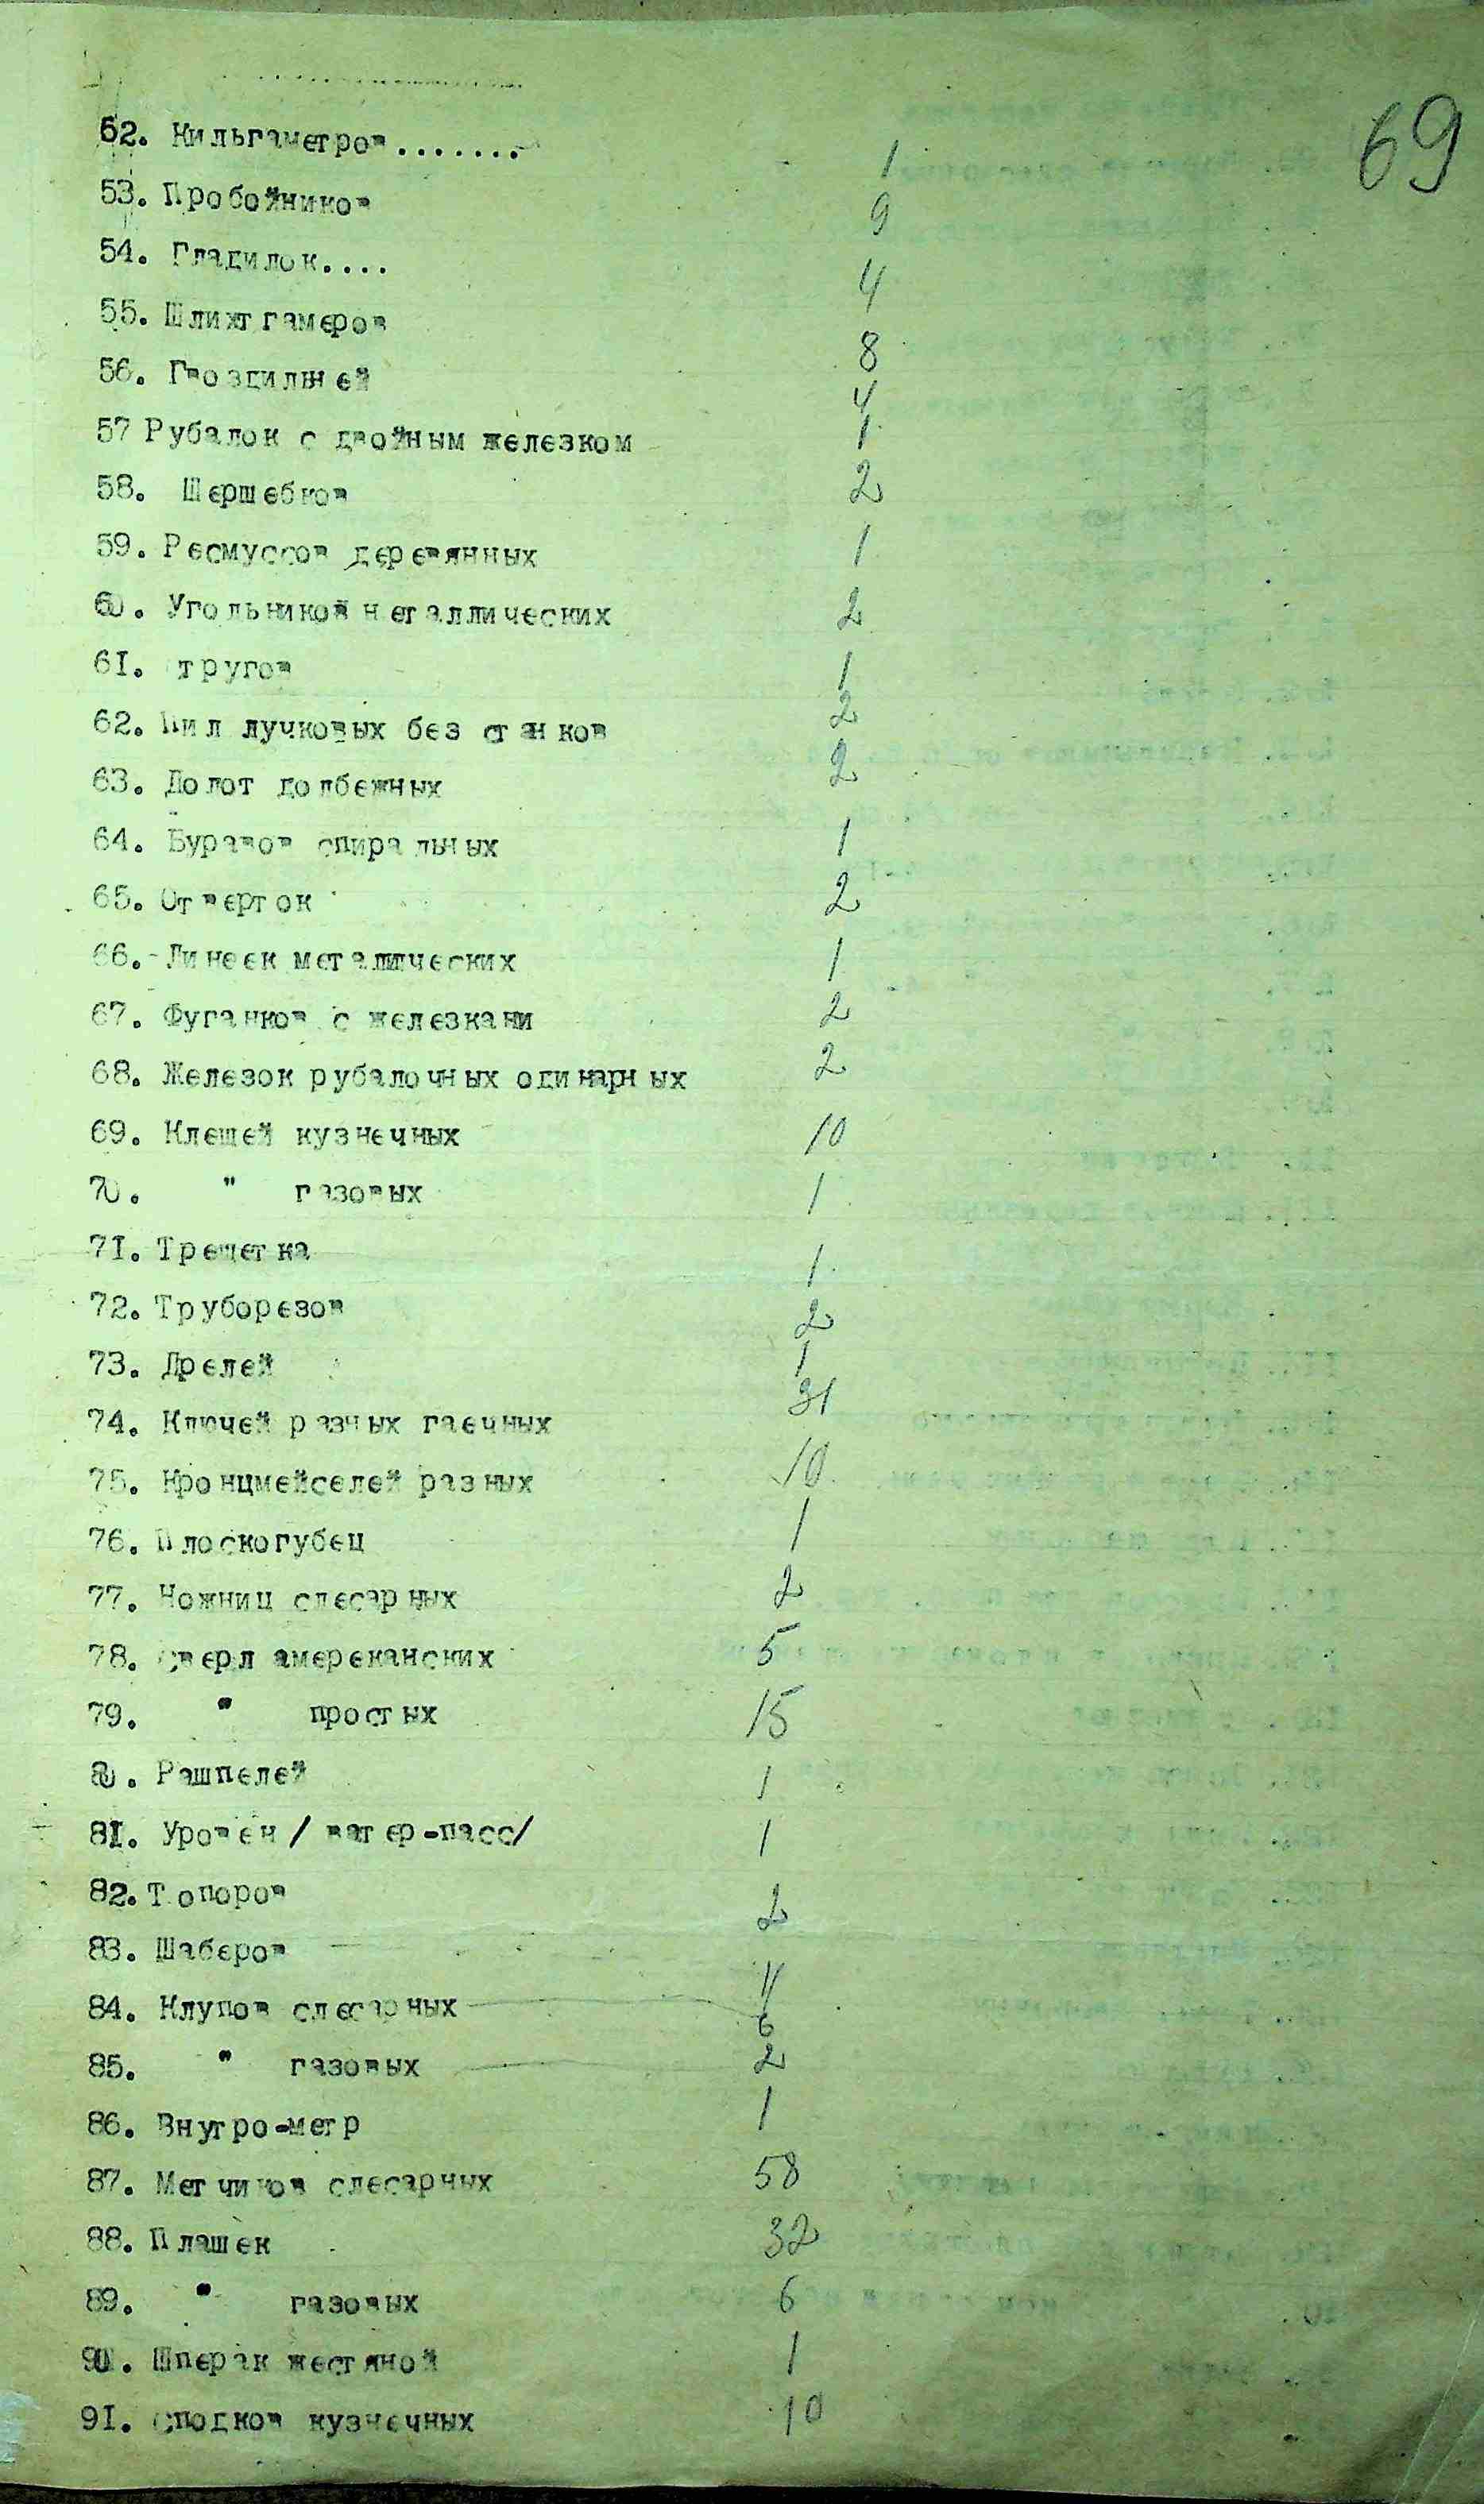 69
52. Кильгаметров....... 1
53. Пробойников 9
54. Гладилок.... 4
55. Шлихтгамеров 8
56. Гвоздильней 4
57 Рубалок с двойным железком 1
58. Шершебков 2
59. Ресмуссов деревянных 1
60. Угольников металлических 2
61. Стругов 1
62. Пил лучковых без станков 2
63. Долот долбежных 2
64. Буравов спиральных 1
65. Отверток 2
66.-Линеек металических 1
67. Фуганков с железками 2
68. Железок рубалочных одинарных 2
69. Клещей кузнечных 10
70. " газовых 1
71. Трещетка 1
72. Труборезов 2
73. Дрелей 1
74. Ключей разных гаечных 31
75. Кронцмейселей разных 10
76. Плоскогубец 1
77. Ножниц слесарных 2
78. Сверл американских 5
79. " простых 15
80. Рашпелей 1
81. Уровен /ватер-пасс/ 1
82. Топоров 2
83. Шаберов 4
84. Клупов слесарных 6
85. " газовых 2
86. Внутро-метр 1
87. Метчиков слесарных 58
88. Плашек 32
89. " газовых 6
90. Шперак жестяной 1
91. Сподков кузнечных 10